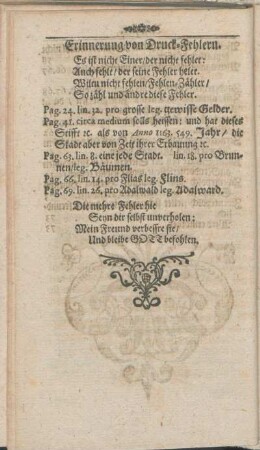 Erinnerung von Druck-Fehlern.
Es ist nicht Einer/der nicht fehler:
Auch fehlt/der seine Fehler helet.
Wiltu nicht fehlen/Fehlen-Zähler/
So zähl und ändre diese Fehler.
Pag. 24. lin. 32. pro grosse leg. gewisse Gelder.
Pag. 41. circa medium solls heissen: und hat dieses
Stifft ꝛc. als von Anno 1163. 549. Jahr/ die
Stadt aber von Zeit ihrer Erbauung ꝛc.
Pag. 63. lin. 8. eine jede Stadt. lin. 18. pro Brun-
nen/leg. Bäumen.
Pag. 66. lin. 14. pro Filas leg. Flins.
Pag. 69. lin. 26. pro Adalwald leg. Adalward.
Die mehre Fehler hie
Seyn dir selbst unverholen;
Mein Freund verbeßre sie/
Und bleibe GOTT befohlen.